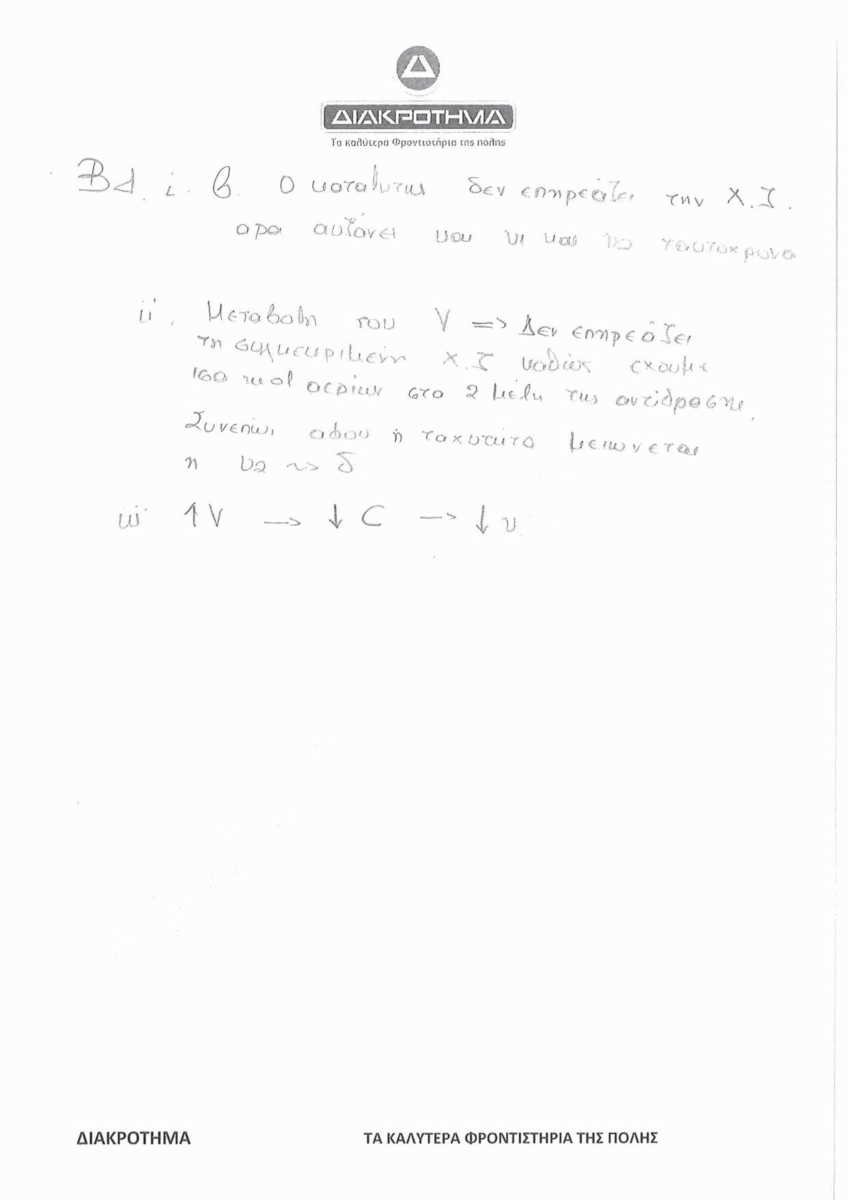 ΔΙΑΚΡΟΤΗΜΑ
Τα καλύτερα Φροντιστήρια της πόλης
B1. i. β. Ο καταλυτης δεν επηρεάζει την Χ.Ι.
αρα αυξάνει και υ1 και υ2 ταυτοχρονα
ii. Μεταβολη του V => Δεν επηρεάζει
τη συγκεκριμενη Χ.Ι καθώς εχουμε
ισα mol αεριων στα 2 μέλη της αντίδρασης.
Συνεπώς αφου ή ταχυτητα μειωνεται
η υ2 ~> δ
iii ↑V —> ↓ C —> ↓ υ
ΔΙΑΚΡΟΤΗΜΑ ΤΑ ΚΑΛΥΤΕΡΑ ΦΡΟΝΤΙΣΤΗΡΙΑ ΤΗΣ ΠΟΛΗΣ